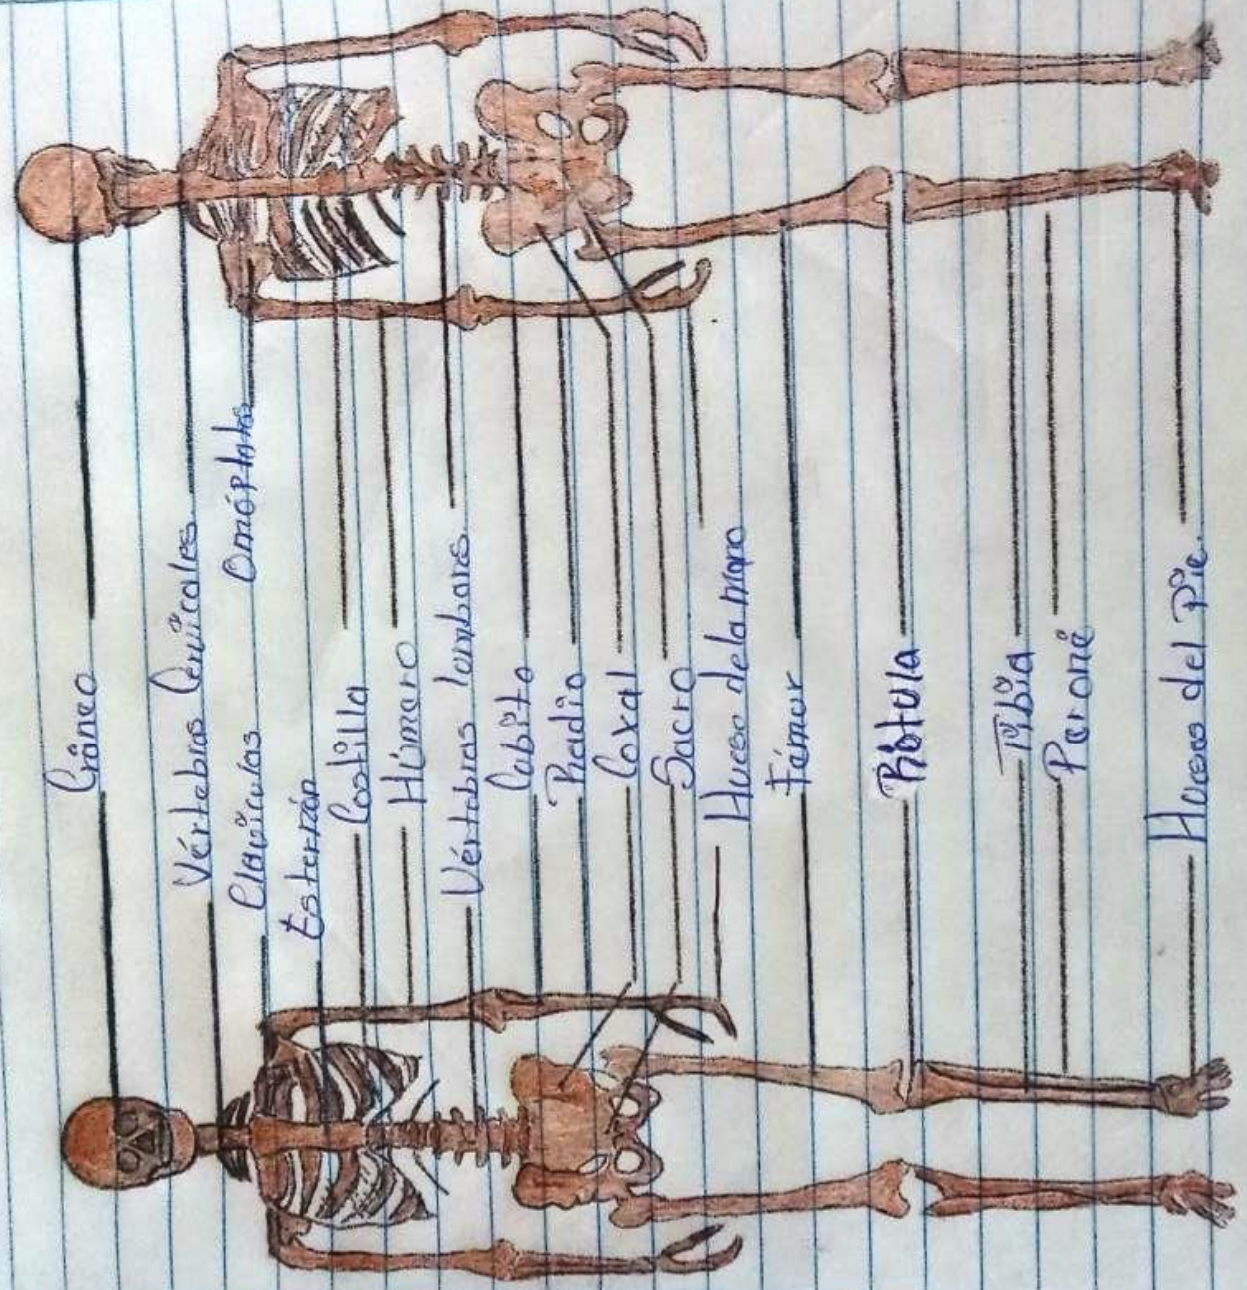 Cráneo
Vértebras Cervicales.
Clavículas
Omóplato
Esternón
Costilla
Húmero
Vértebras lumbares.
Cubito
Radio
Coxal
Sacro
Hueso de la mano
Fémur
Rótula
Tibia
Peroné
Huesos del Pie.